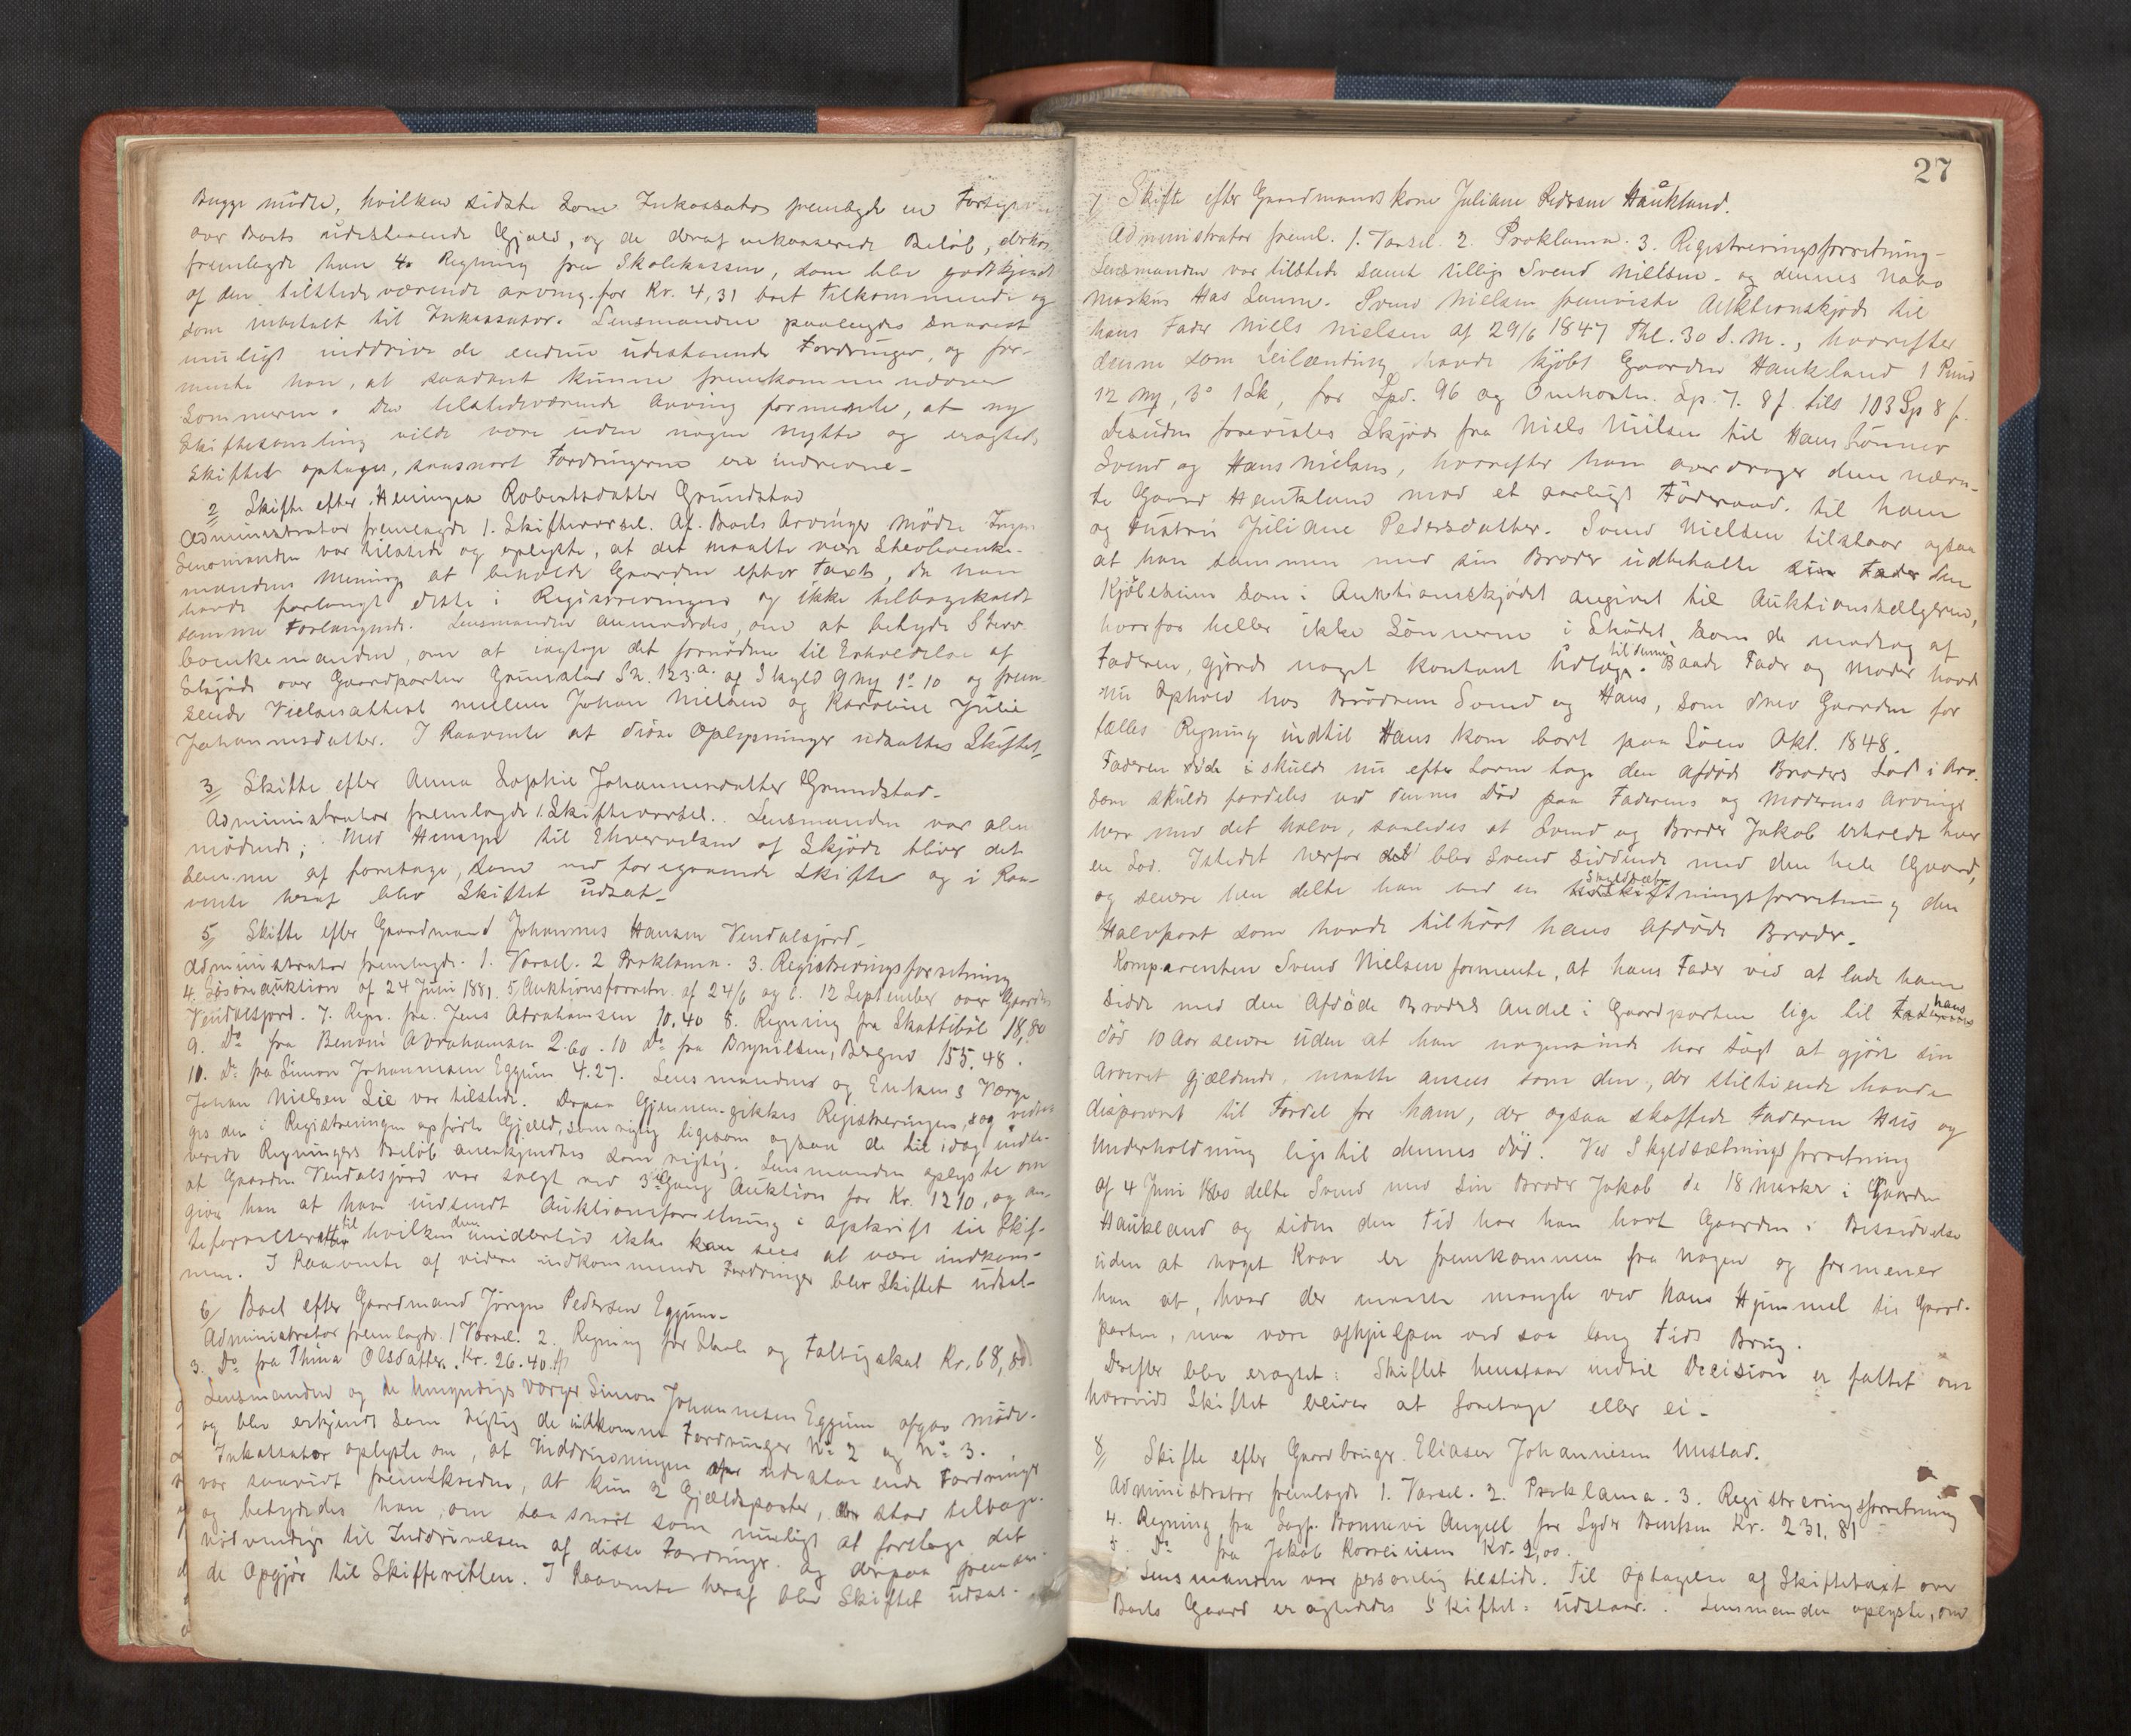 Bugge mødte, hvilken sidste som Inkassator fremlagde en
over Boets udestaaende Gjæld, og de deraf inkasserede Beløb,
fremlagde han 4. Regning fra Skolekassen, som blev godkjendt
af den tilstedeværende arving for Kr. 4,31 boet tilkommende og
som udbetalt til Inkassator. Lensmanden paalagdes snarest
muligt inddrive de endnu udestaaende Fordringer, og for-
mente han, at saadant kunne fremkomme
Sommeren. Den tilstedeværende Arving formente, at ny
Skiftesamling vilde være uden nogen nytte og eragtedes
Skiftet optages, saasnart Fordringerne ere inddrevne-
2 Skifte efter Robertsdatter Grundstad
Administrator fremlagde 1. Skiftevarsel. Af Boets Arvinger mødte Ingen
Lensmanden var tilstede og oplyste, at det maatte være Stervboenke-
mandens Mening at beholde Gaarden efter Taxt, da han
havde forlangt dette i Registreringen og ikke tilbagekaldt
samme Forlangende. Lensmanden anmodedes, om at betyde Sterv-
boenkemanden, om at iagttage det fornødne til Erholdelse af
Skjøde over Gaardparten Grundstad Ln. 123.a. af Skyld 9 mk 1. 10 og frem-
sende Vielsesattest mellem Johan Nielsen og Karoline Julie
Johannesdatter. I Paavente af disse Oplysninger udsattes Skiftet-
3 Skifte efter Anna Sophie Johannesdatter Grundstad-
Administrator fremlagde 1. Skiftevarsel. Lensmanden var alene
mødende; Med Hensyn til Erhvervelsen af Skjøde bliver det
samme at foretage, som ved foregaaende Skifte og i Paa-
vente heraf blev Skiftet udsat-
5 Skifte efter Gaardmand Johannes Hansen Vendalsjord-
Administrator fremlagde. 1. Varsel. 2 Proklama. 3. Registreringsforretning
4. Løsøreauktion af 24 Juni 1881. 5 Auktionsforretn. af 24/6 og 6. 12 September over Gaarden
Vendalsjord. 7. Regn. fra Jens Abrahamsen 10.40 8. Regning fra Skattebøl 18,80
9. Do fra Benoni Abrahamsen 2.60. 10 Do fra Brynilsen, Bergen 155.48.
10. Do fra Simon Johannesen Eggum 4.27. Lensmanden og Enkens Værge
Johan Nielsen Lie var tilstede. Derpaa Gjennemgikkes Registreringen, og vedto-
ges den i Registreringen opførte Gjæld, som rigtig ligesom ogsaa de til idag indle-
verede Regningers Beløb anerkjendtes som rigtig. Lensmanden oplyste om
at Gaarden Vendalsjord var solgt ved 3die Gang Auktion for Kr. 1210, og an-
giver han at have indsendt Auktionsforretning i Afskrift til Skif-
teforvalteren til hvilken den imidlertid ikke kan sees at være indkom-
men. I Paavente af videre indkommende Fordringer blev Skiftet udsat-
6 Boet efter Gaardmand Jørgen Pedersen Eggum-
Administrator fremlagde. 1 Varsel. 2. Regning for Skole og Fattigskat Kr. 68,80
3. Do fra Thina Olsdatter. Kr. 26.40.
Lensmanden og de Umyndiges Værger Simon Johannesen Eggum afgav møde.
og blev erkjendt som rigtig de indkomne Fordringer No 2 og No 3.
Inkassator oplyste om, at Inddrivningen af udestaaende Fordringer
var saavidt fremskreden, at kun 2 Gjældsposter, der staar tilbage.
og betydedes han, om saa snart som muligt at foretage det
nødvendige til Inddrivelsen af disse Fordringer. og derpaa fremsen-
de Opgjør til Skifteretten. I Paavente heraf blev Skiftet udsat-
27
7 Skifte efter Gaardmandskone Juliane Pedersen Haukland.
Administrator freml. 1. Varsel. 2. Proklama. 3. Registreringsforretning-
Lensmanden var tilstede samt tillige Svend Nielsen- og dennes Nabo
Markus Has Svend Nielsen foreviste Auktionsskjøde til
hans Fader Niels Nielsen af 29/6 1847 Thl. 30 S. M., hvorefter
denne som Leilænding havde kjøbt Gaarden Haukland 1 Pund
12 mk, 3 1 Sk, for Spd. 96 og Omkostn. Sp. 7. 8 f. tils 103 Sp 8 f.
Desuden forevistes Skjøde fra Niels Nielsen til Hans Sønner
Svend og Hans Nielsen, hvorefter han overdrager dem nævn-
te Gaard Haukland mod et aarligt Føderaad. til ham
og Hustru Juliane Pedersdatter. Svend Nielsen tilstaar ogsaa
at han sammen med sin Broder udbetalte sin Fader den
Kjøbesum som i Auktionsskjødet angivet til Auktionssælgeren,
hvorfor heller ikke Sønnerne i Skødet, som de modtog af
Faderen, gjorde noget kontant Udlæg til denne. Baade Fader og Moder havde
nu Ophold hos Brødrene Svend og Hans, som drev Gaarden for
fælles Regning indtil Hans kom bort paa Søen Okt. 1848.
Faderen skulde nu efter Loven tage den afdøde Broders Lod i Arv.
som skulde fordeles ved dennes Død paa Faderens og Moderens Arvinge
hver med det halve, saaledes at Svend og Broder Jakob erholdt hver
en Lod. Istedet herfor blev Svend siddende med den hele Gaard,
og senere hen delte han ved en Skyldsætningsforretning den
Halvpart som havde tilhørt hans afdøde Broder-
Komparenten Svend Nielsen formente, at hans Fader ved at lade ham
sidde med den afdøde Broders Andel i Gaardparten lige til hans
død 10 Aar senere uden at han nogensinde har søgt at gjøre sin
Arveret gjældende, maatte ansees som den, der stiltiende havde
disponeret til Fordel for ham, der ogsaa skaffede Faderen Hus og
Underholdning lige til dennes død. Ved Skyldsætningsforretning
af 4 Juni 1860 delte Svend med sin Broder Jakob de 18 Marker i Gaarden
Haukland og siden den Tid har han havt Gaarden i Besiddelse
uden at noget Krav er fremkommen fra nogen og formener
han at, hvad der maatte mangle ved hans Hjemmel til Gaard-
parten, maa være afhjulpen ved saa lang Tids Brug.
Derefter blev eragtet: Skiftet henstaar indtil Decision er faltet om
hvorvidt Skiftet bliver at foretage eller ei-
8 Skifte efter Gaardbruger Eliaser Johannesen Unstad.
Administrator fremlagde 1. Varsel. 2. Proklama. 3. Registreringsforretning
4. Regning fra Sagf. Bonnevi Angell for Lyder Berntsen Kr. 231.81
5. Do fra Jakob Kr. 2,00.
Lensmanden var personlig tilstede. Til Optagelse af Skiftetaxt over
Boets Gaard eragtedes Skiftet: Udstaar. Lensmanden oplyste, om